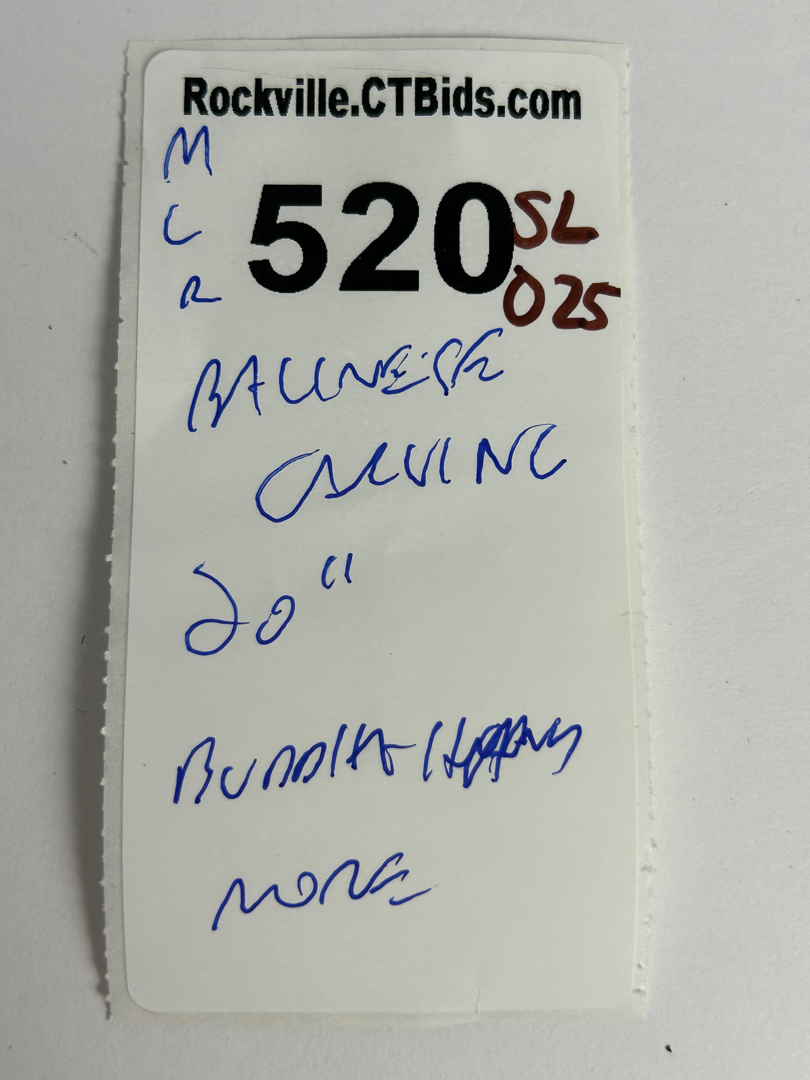 Rockville.CTBids.com
M
C
R
520
SL
025
BALINESE
CARVING
20"
BUDDHA
MORE